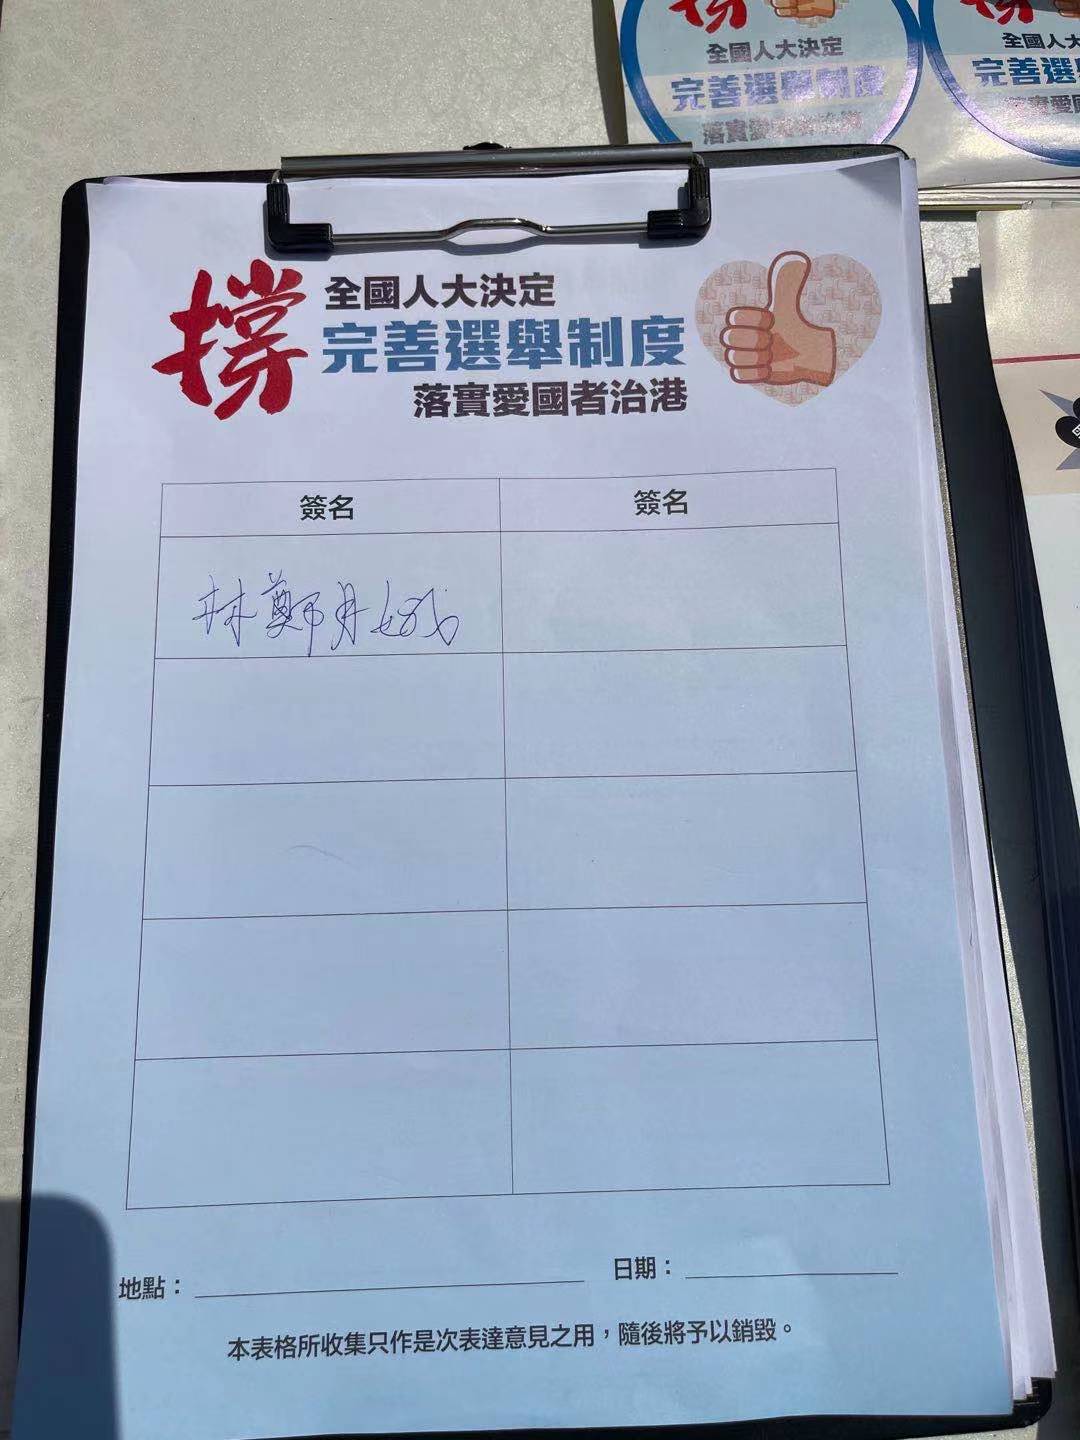 全國人大決定
完善選舉制度
落實愛國者治港
全國人大
完善選
撐
全國人大決定
完善選舉制度
落實愛國者治港
簽名
簽名
林鄭月娥
地點：
日期：
本表格所收集只作是次表達意見之用，隨後將予以銷毀。